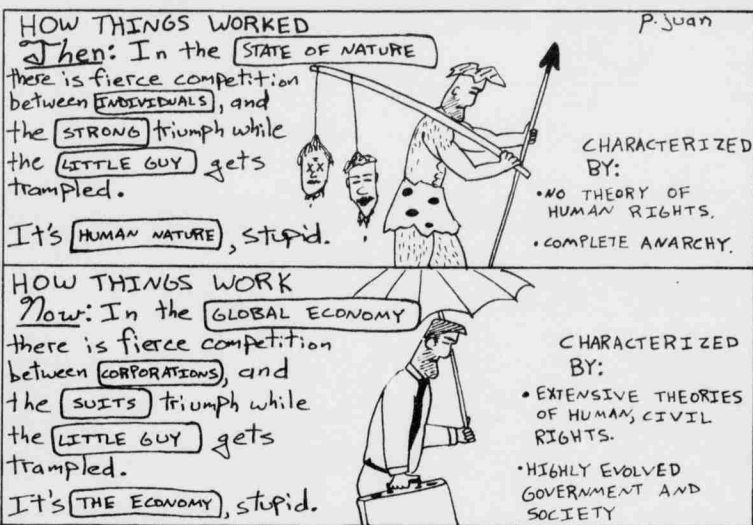 HOW THINGS WORKED
Then: In the STATE OF NATURE
there is fierce competition
between INDIVIDUALS, and
the STRONG triumph while
the LITTLE GUY gets
trampled.
It's HUMAN NATURE, stupid.
P. Juan
CHARACTERIZED
BY:
• NO THEORY OF
HUMAN RIGHTS.
• COMPLETE ANARCHY.
HOW THINGS WORK
Now: In the GLOBAL ECONOMY
there is fierce competition
between CORPORATIONS, and
the SUITS triumph while
the LITTLE GUY gets
trampled.
It's THE ECONOMY, stupid.
CHARACTERIZED
BY:
• EXTENSIVE THEORIES
OF HUMAN, CIVIL
RIGHTS.
• HIGHLY EVOLVED
GOVERNMENT AND
SOCIETY